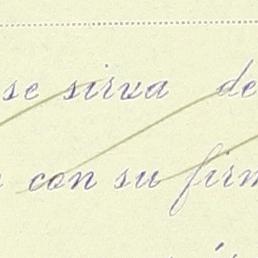 se sirva de
con su firm